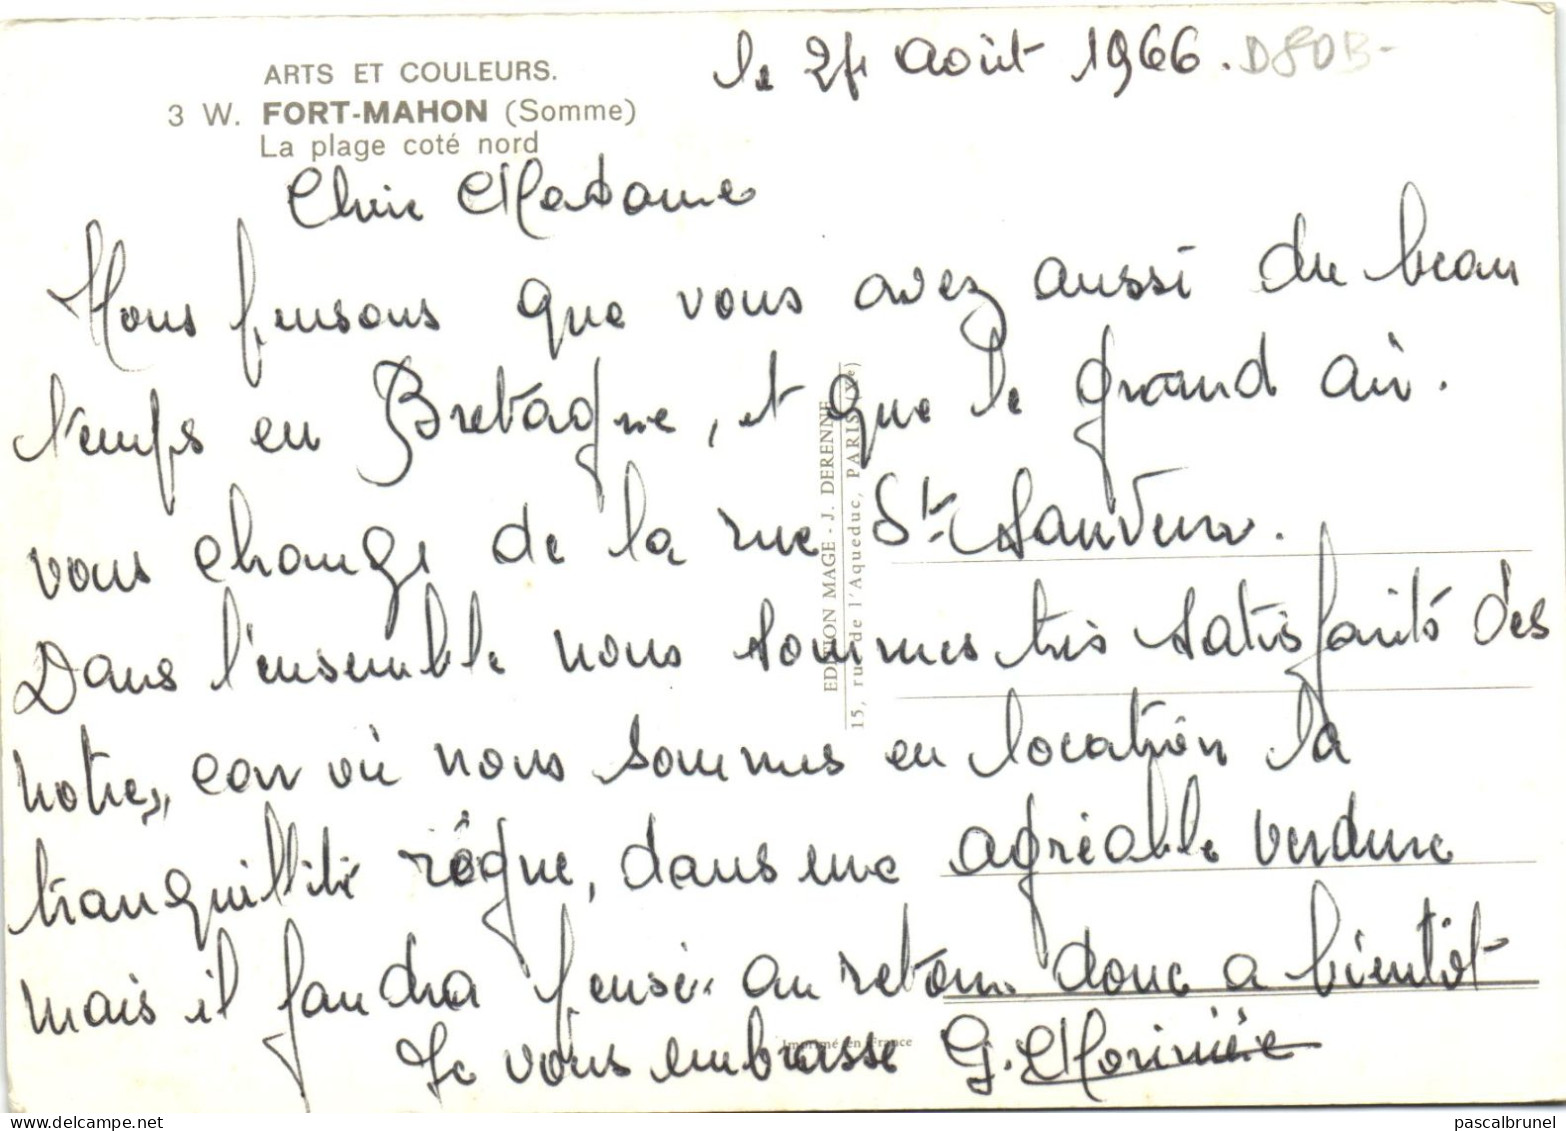 le 24 août 1966. D80B-
ARTS ET COULEURS.
3 W. FORT-MAHON (Somme)
La plage coté nord
Chère Madame
Nous pensons que vous avez aussi du beau
temps en Bretagne, et que le grand air.
vous change de la rue St Sauveur.
Dans l'ensemble nous sommes très satisfaits des
notres, car où nous sommes en location la
tranquillité règne, dans une agréable verdure
mais il faudra penser au retour donc a bientôt
Je vous embrasse G. Morinière
EDITION MAGE - J. DERENNE
15, rue de l'Aqueduc, PARIS (Xe)
Imprimé en France
pascalbrunel